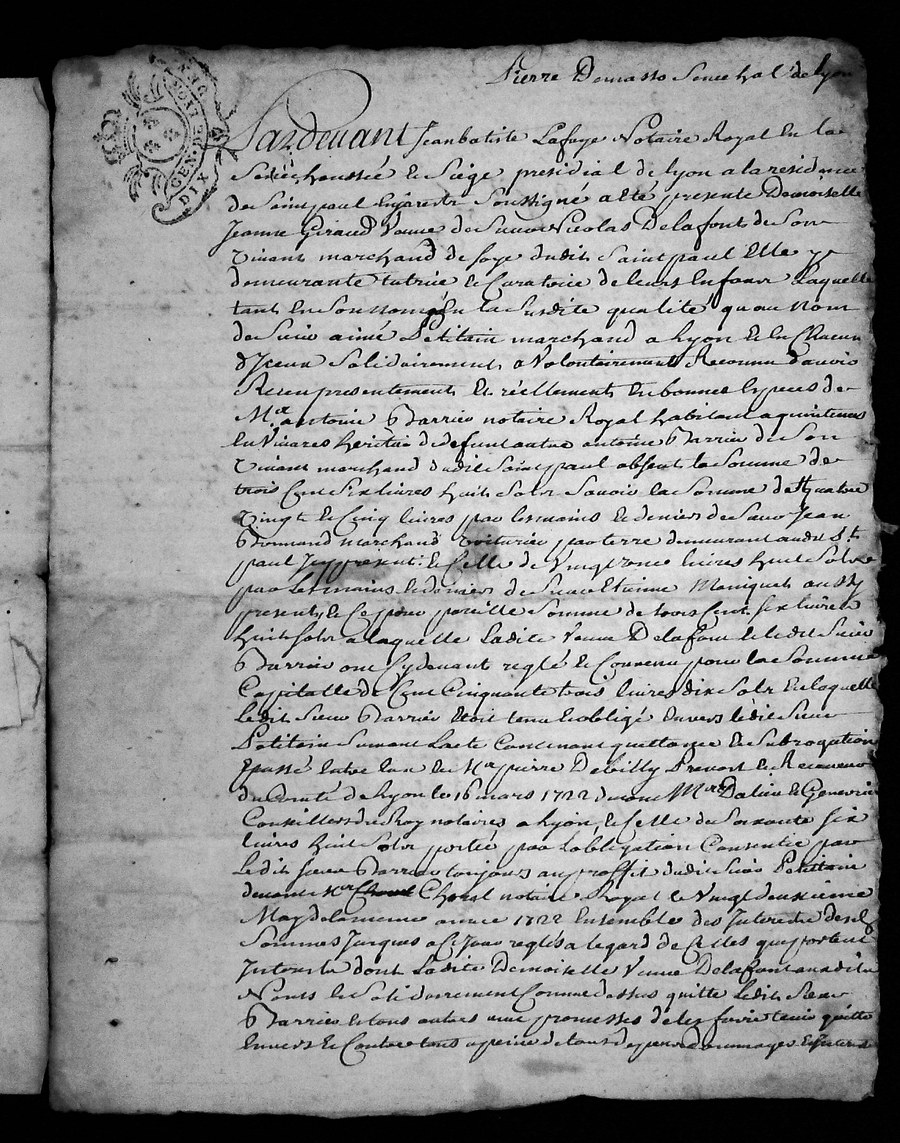 GEN. DE LYON
DIX DEN
Pierre Demasso Senechal de lyon
Pardevant Jean batiste Lafuye Notaire Royal En la
Sénéchaussée & Siège présidial de lyon a la residence
de Saint paul En jarestz Soussigné a été présente Demoiselle
Jeanne Giraud Veuve de Sieur Nicolas Delafont de Son
Vivant marchand de Soye dudit Saint paul Elle y
demeurante tutrice & Curatrice de leurs Enfans Laquelle
tant En Son nom qu'En la Susdite qualité qu'au Nom
de Sieur aimé Petitain marchand a Lyon & En Chacun
d'Yceux Solidairement a Volontairement Reconnu d'avoir
Receu présentement & réellement En bonnes Especes de
Mr. antoine Barrieu notaire Royal habitant a
En Vivares heritier de defunt autre antoine Barrieu de Son
Vivant marchand dudit Saint paul absent la Somme de
trois Cent Six livres huit Sols Savoir la Somme de Quatre
Vingt & Cinq livres par les mains & deniers de Sieur Jean
marchand Voiturier par terre demeurant audit St.
paul Icy présent & Celle de Vingt livres huit Sols
par Les mains & deniers de Sieur Etienne Moniquet aussy
present, & Ce pour pareille Somme de trois Cent Six livres
huit Sols a laquelle Ladite Veuve Delafont & ledit Sieur
Barrieu ont Cydevant reglé & Convenu pour la Somme
Capitalle de Cent Cinquante trois livres dix Sols En laquelle
Ledit Sieur Barrieu Etoit tenu & obligé Envers ledit Sieur
Petitain Suivant Lacte Contenant quittance & Subrogation
& passé Entre Lui & Sr. pierre Debilly Prevost & Receveur
du Comté de Lyon le 16 mars 1722 devant Mrs. Dalier & Genevrier
Conseillers du Roy notaires a Lyon, & Celle de Soixante Six
livres huit Sols portée par Lobligation Consentie par
Ledit Sieur Barrieu toujours au proffit dudit Sieur Petitain
devant Mr Choral notaire Royal le Vingt deuxième
May de la meme année 1722 Ensemble des Interets desd.
Sommes Jusques a Ce Jour reglés a legard de Celles qui portent
Interets dont Ladite Demoiselle Veuve Delafont auxdits
Noms & Solidairement Comme dessus quitte Ledit Sieur
Barrieu & tous autres avec promesses de les faire tenir quitte
Envers & Contre tous a peine de tous depens dommages & Interets